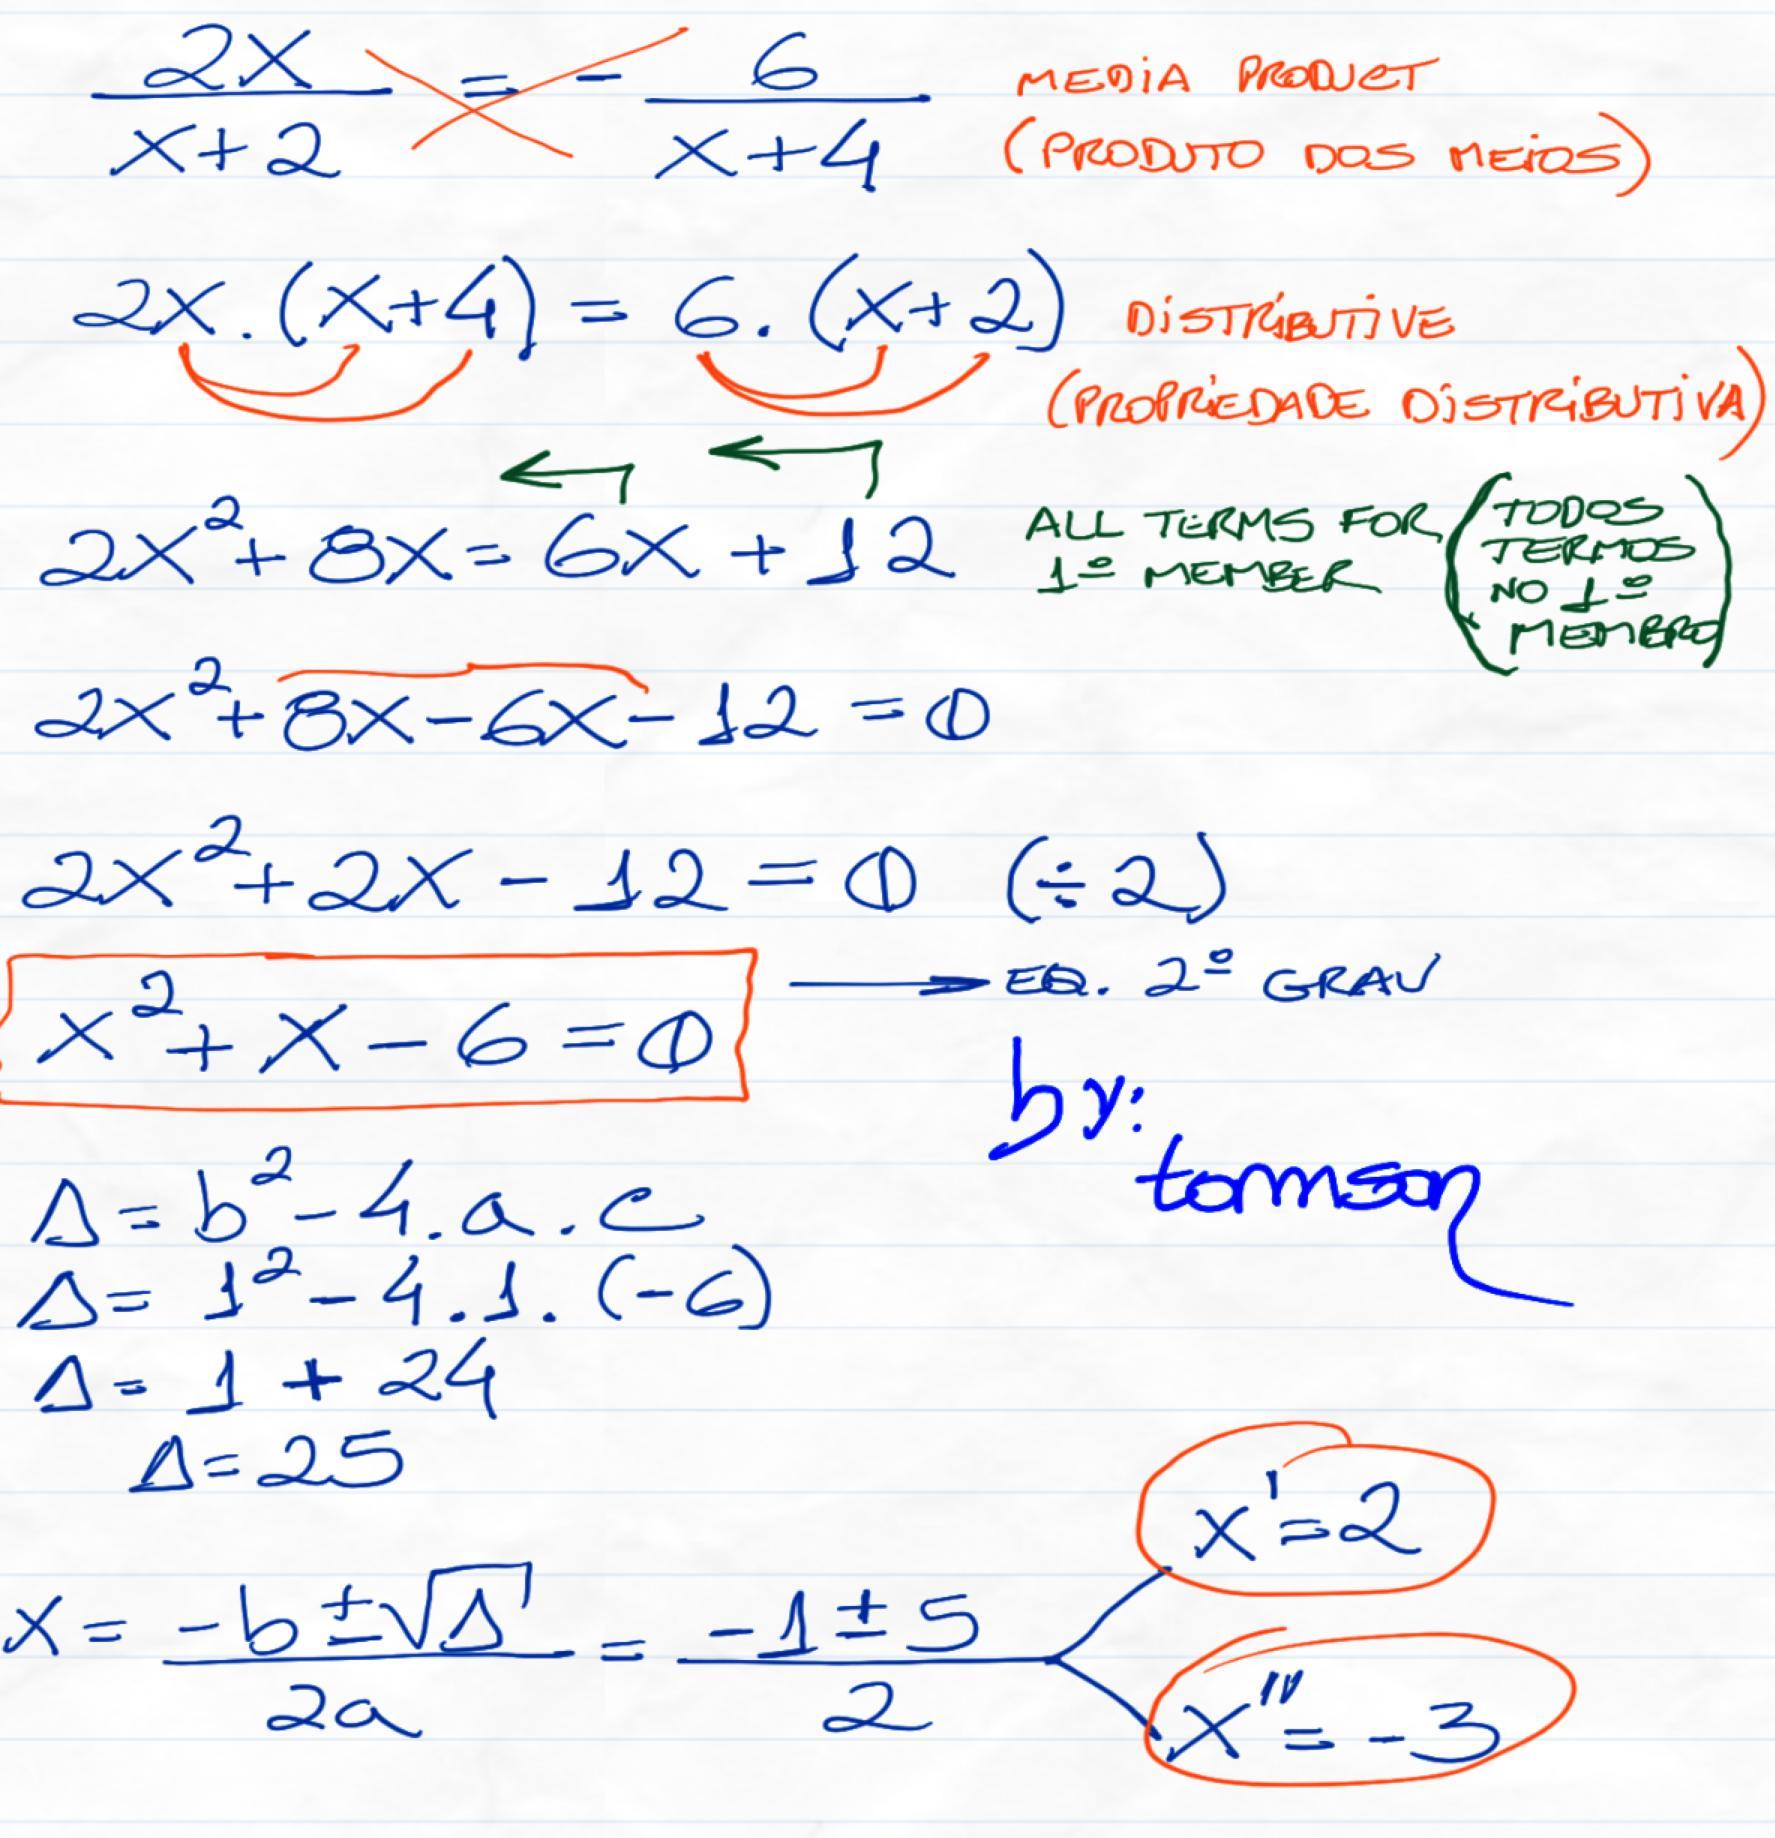 2x/x+2 = - 6/x+4 MEDIA PRODUCT
(PRODUTO DOS MEIOS)
2x.(x+4) = 6.(x+2) DISTRIBUTIVE
(PROPRIEDADE DISTRIBUTIVA)
2x²+8x=6x+12 ALL TERMS FOR 1º MEMBER (TODOS TERMOS NO 1º MEMBRO)
2x²+8x-6x-12=0
2x²+2x-12=0 (÷2)
x²+x-6=0 → EQ. 2º GRAU
by:
tommson
Δ=b²-4.a.c
Δ=1²-4.1.(-6)
Δ=1+24
Δ=25
x'=2
x = -b±√Δ/2a = -1±5/2
x"=-3